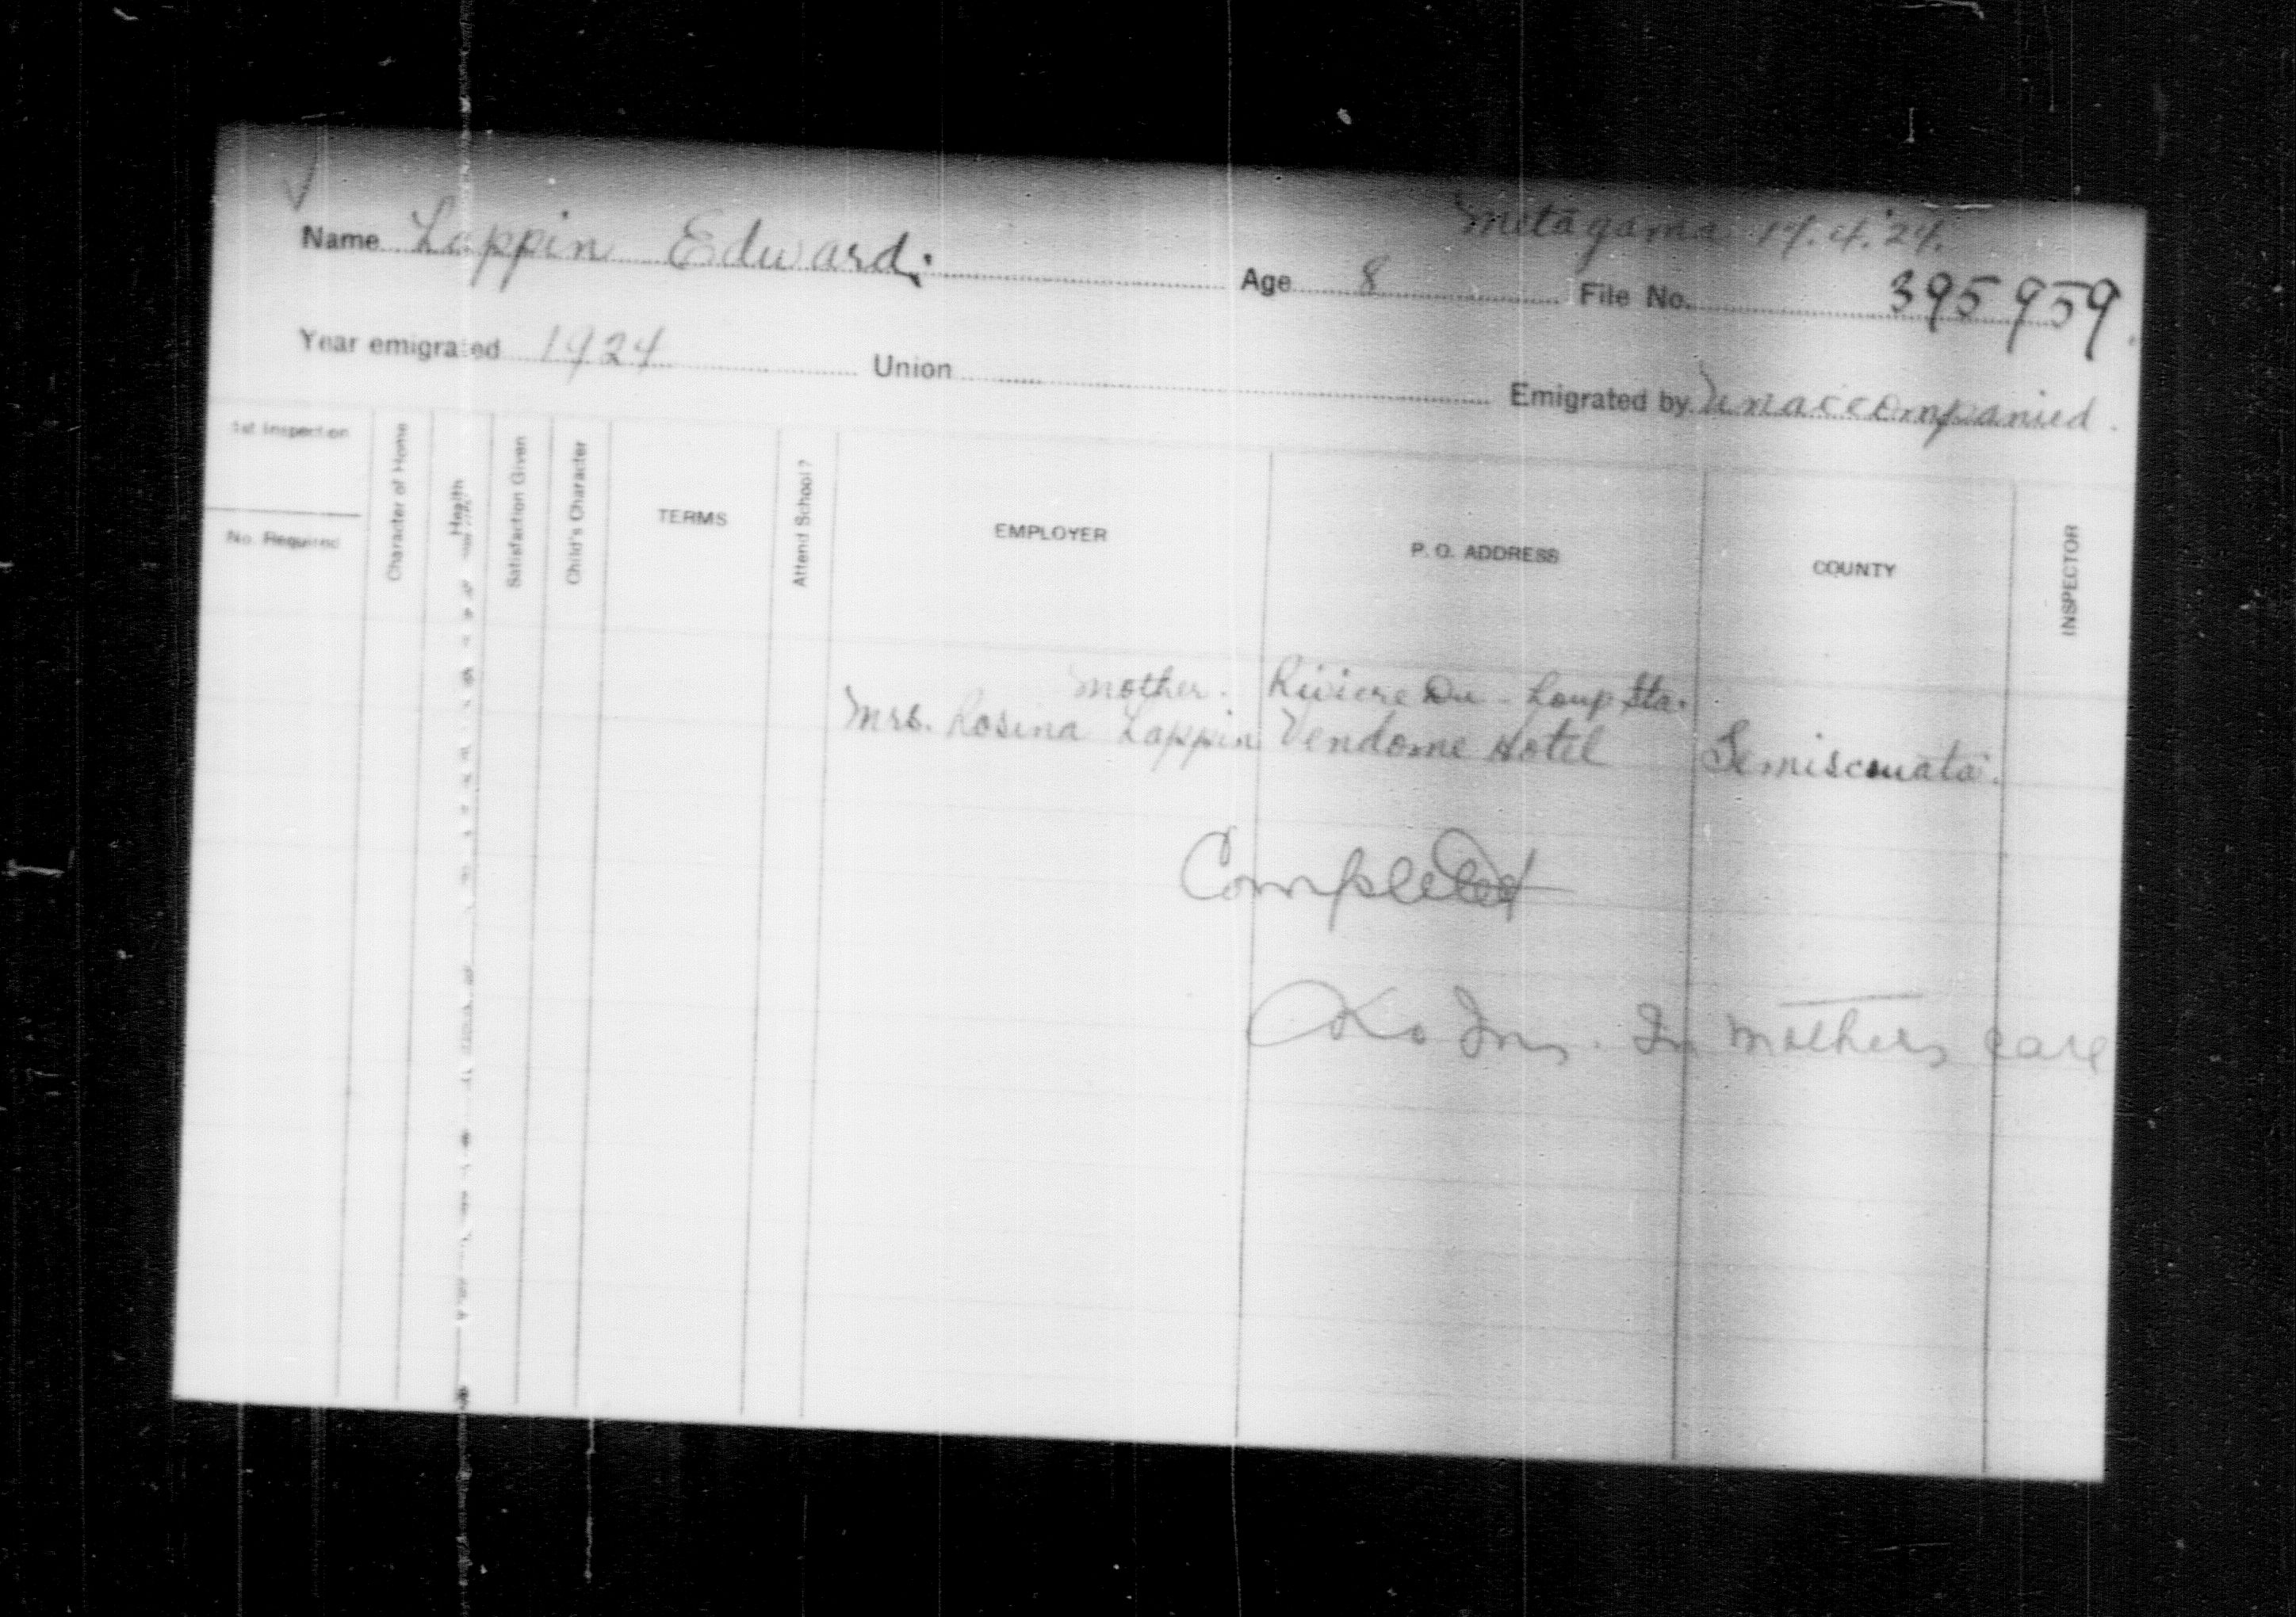 Metagama 14.4.24.
Name Lappin Edward. Age 8 File No. 395959.
Year emigrated 1924 Union Emigrated by Unaccompanied.
1st Inspection
No. Required
Character of Home
Health
Satisfaction Given
Child's Character
TERMS
Attend School?
EMPLOYER
P. O. ADDRESS
COUNTY
INSPECTOR
Mother. Riviere Du - Loup Sta.
Mrs. Rosina Lappin Vendome Hotel Temiscouata.
Completed
No Ins. In mothers care